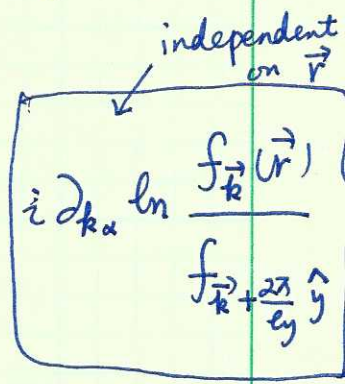 independent
on \vec{r}
i ∂_{k_α} ln \frac{f_{\vec{k}}(\vec{r})}{f_{\vec{k}+\frac{2π}{ℓ_y}\hat{y}}} (